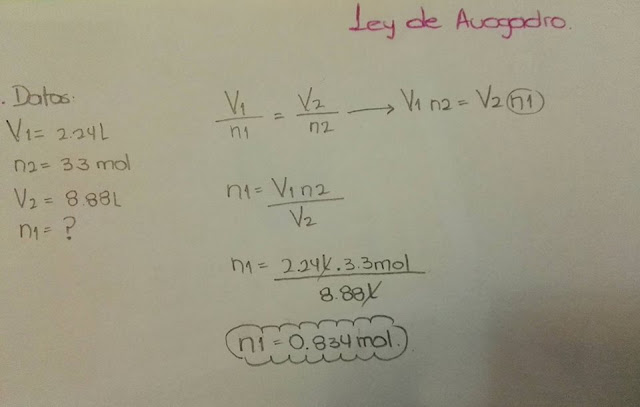 Ley de Avogadro.
. Datos:
V1 = 2.24L
n2 = 3.3 mol
V2 = 8.88L
n1 = ?
V1/n1 = V2/n2 → V1 n2 = V2 n1
n1 = V1 n2/V2
n1 = 2.24L . 3.3mol/8.88L
n1 = 0.834 mol.